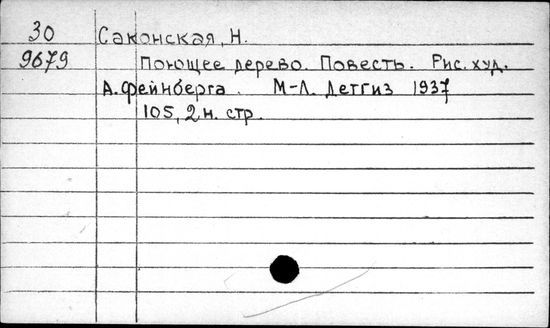 30 Саконская, Н.
9679 Поющее дерево. Повесть. Рис. худ.
А. Фейнберга. М-Л. Детгиз 1937
105, 2 н. стр.